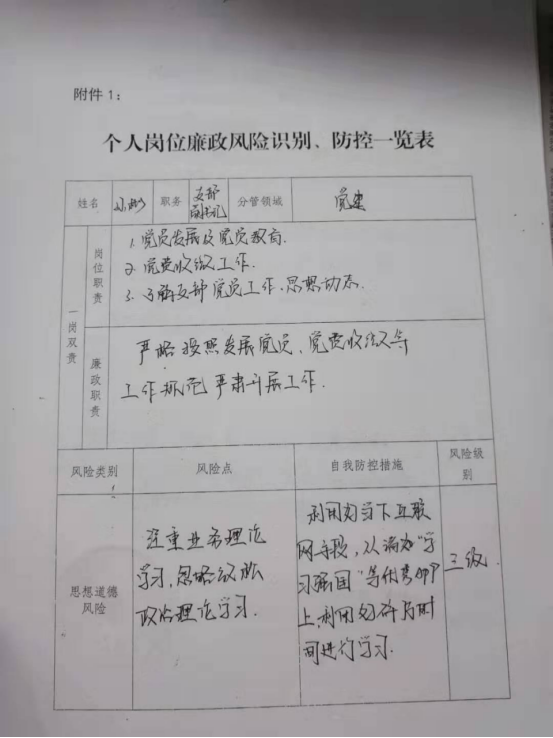 附件1：
个人岗位廉政风险识别、防控一览表
姓名
职务
支部
副书记
分管领域
党建
一岗双责
岗位职责
1. 党员发展及党员教育.
2. 党费收缴工作.
3. 了解支部党员工作、思想动态.
廉政职责
严格按照发展党员、党费收缴等
工作规范严肃开展工作.
风险类别
风险点
自我防控措施
风险级别
思想道德
风险
注重业务理论
学习,忽略
政治理论学习.
利用好当下互联
网手段,从
习强国"等
上,利用
间进行学习.
三级.